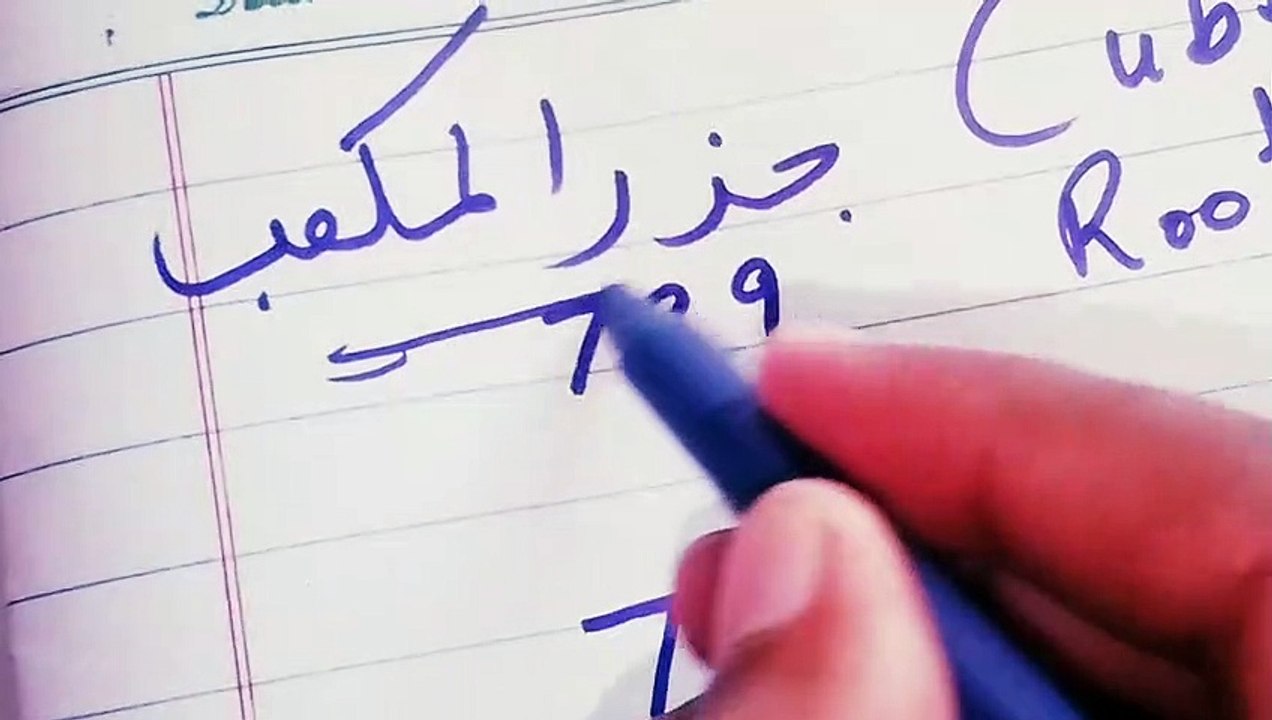 جذر المكعب
Cub
Roo
729